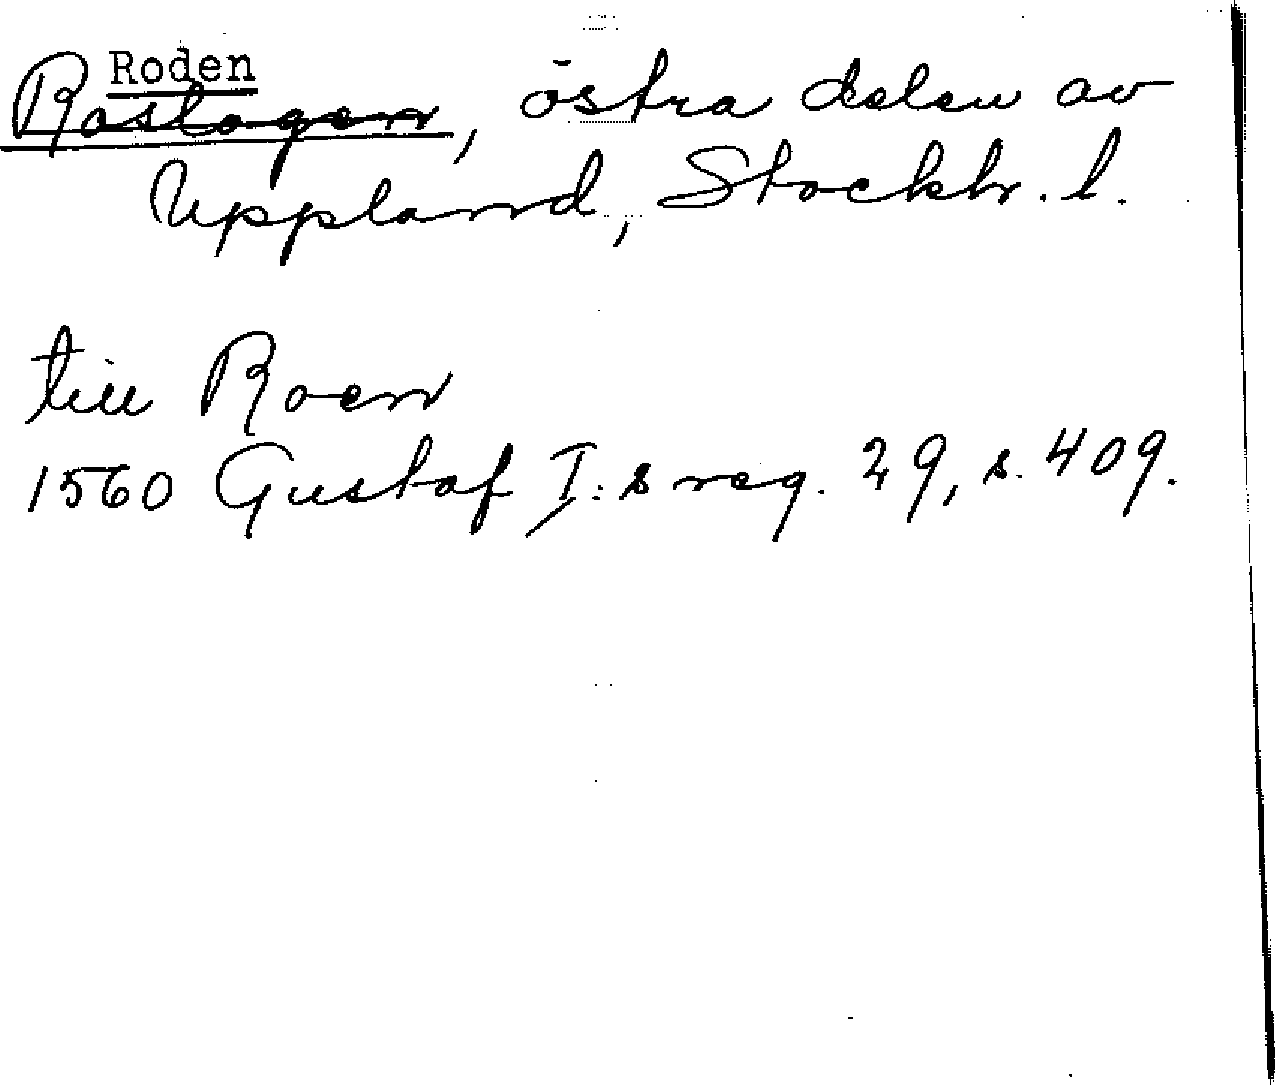 Roden
Roslagen, östra delen av
Uppland, Stockh. l.
till Roen
1560 Gustaf I:s reg. 29, s. 409.